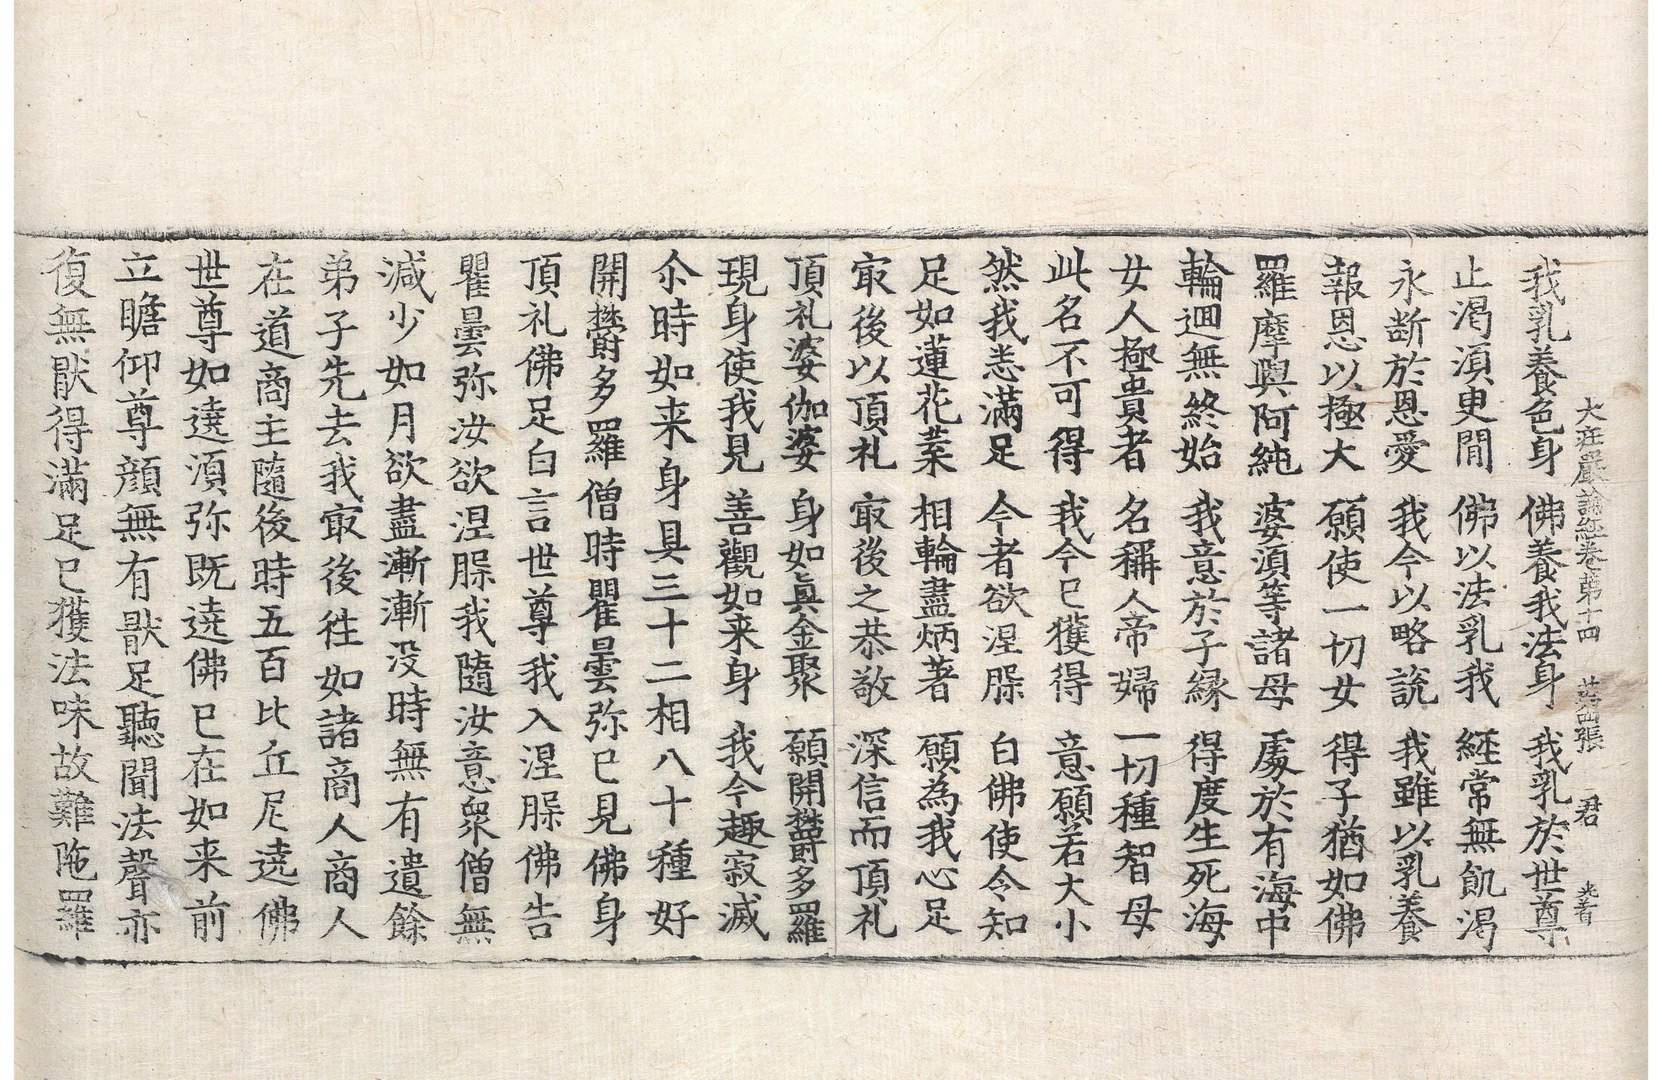 大莊嚴論經卷第十四 第四張 君
我乳養色身 佛養我法身 我乳於世尊
止渴湏臾間 佛以法乳我 經常無飢渴
永断於恩愛 我今以略說 我雖以乳養
報恩以極大 願使一切女 得子猶如佛
羅摩與阿純 婆湏等諸母 處於有海中
輪迴無終始 我意於子縁 得度生死海
女人極貴者 名稱人帝婦 一切種智母
此名不可得 我今已獲得 意願若大小
然我悉滿足 今者欲涅槃 白佛使令知
足如蓮花葉 相輪盡炳著 願為我心足
㝡後以頂礼 㝡後之恭敬 深信而頂礼
頂礼婆伽婆 身如眞金聚 願開欝多羅
現身使我見 善觀如来身 我今趣寂滅
尒時如来身具三十二相八十種好
開欝多羅僧時瞿曇弥已見佛身
頂礼佛足白言世尊我入涅槃佛告
瞿曇弥汝欲涅槃我隨汝意衆僧無
減少如月欲盡漸漸没時無有遺餘
弟子先去我㝡後徃如諸商人商人
在道商主隨後時五百比丘尼遶佛
世尊如遶湏弥既遶佛已在如来前
立瞻仰尊顔無有猒足聽聞法聲亦
復無猒得滿足已獲法味故難陁羅